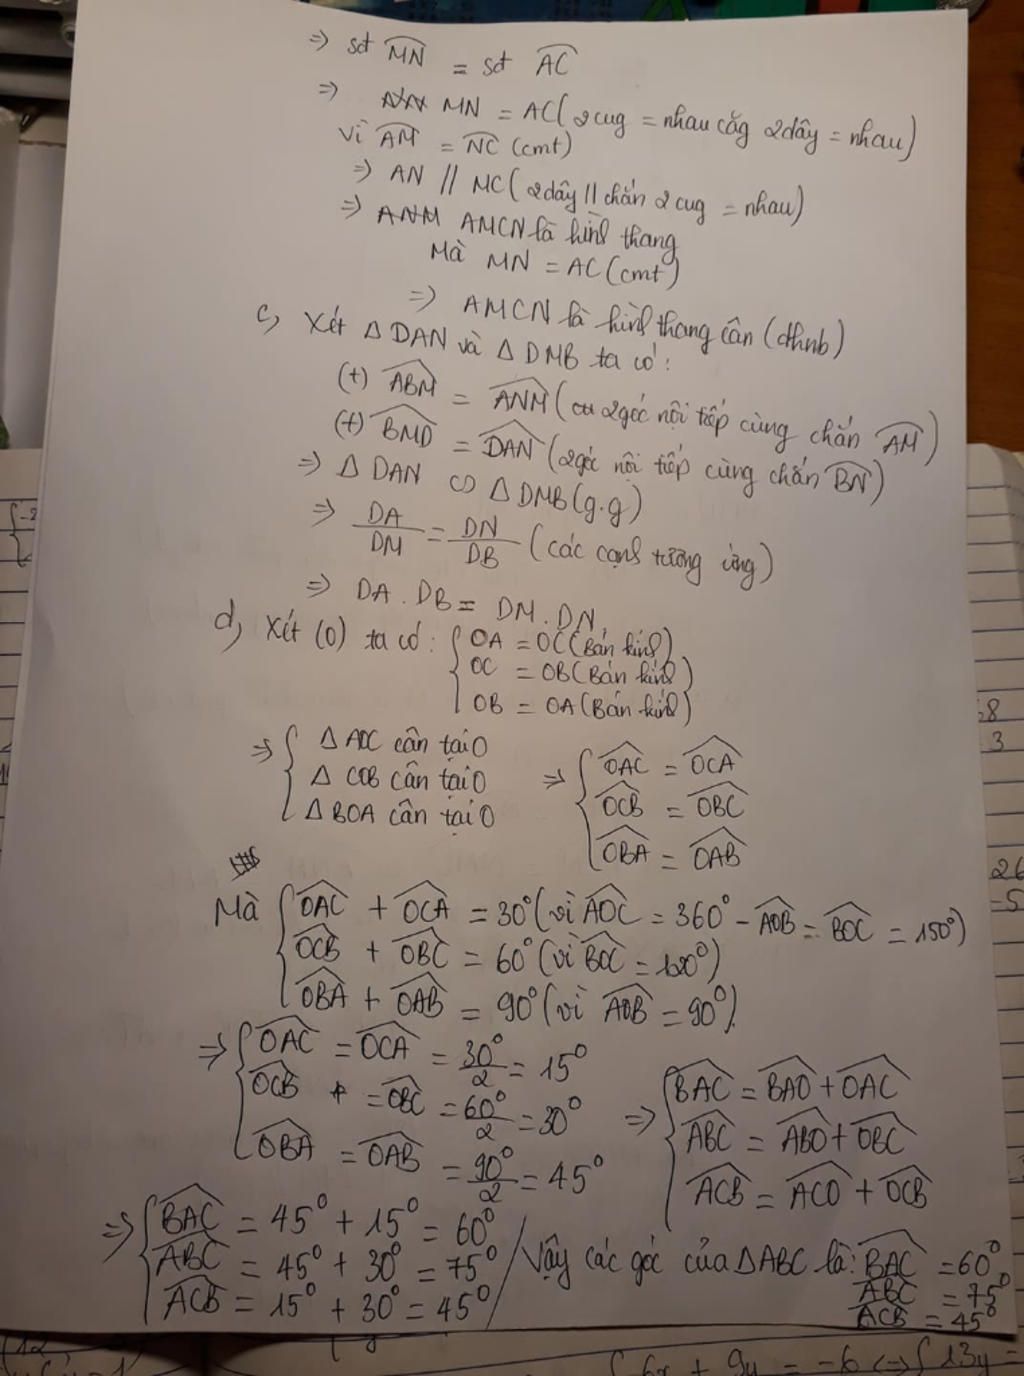 => sđ MN = sđ AC
=> MN = AC (2 cug = nhau căg 2 dây = nhau)
Vì AM = NC (cmt)
=> AN // MC (2 dây // chắn 2 cug = nhau)
=> ANM AMCN là hình thang
Mà MN = AC (cmt)
=> AMCN là hình thang cân (dhnb)
c, Xét Δ DAN và Δ DMB ta có:
(+) ABM = ANM (2 góc nội tiếp cùng chắn AM)
(+) BMD = DAN (2 góc nội tiếp cùng chắn BN)
=> Δ DAN ∽ Δ DMB (g.g)
=> DA/DM = DN/DB (các cạnh tương ứng)
=> DA . DB = DM . DN
d, Xét (O) ta có: { OA = OC (Bán kính)
OC = OB (Bán kính)
OB = OA (Bán kính)
=> { Δ AOC cân tại O
Δ COB cân tại O
Δ BOA cân tại O
=> { OAC = OCA
OCB = OBC
OBA = OAB
Mà { OAC + OCA = 30° (vì AOC = 360° - AOB - BOC = 150°)
OCB + OBC = 60° (vì BOC = 120°)
OBA + OAB = 90° (vì AOB = 90°)
=> { OAC = OCA = 30°/2 = 15°
OCB = OBC = 60°/2 = 30°
OBA = OAB = 90°/2 = 45°
=> { BAC = BAO + OAC
ABC = ABO + OBC
ACB = ACO + OCB
=> { BAC = 45° + 15° = 60°
ABC = 45° + 30° = 75°
ACB = 15° + 30° = 45°
/ Vậy các góc của Δ ABC là: BAC = 60°
ABC = 75°
ACB = 45°
{ 6x + 9y = -6 <=> { 13y =